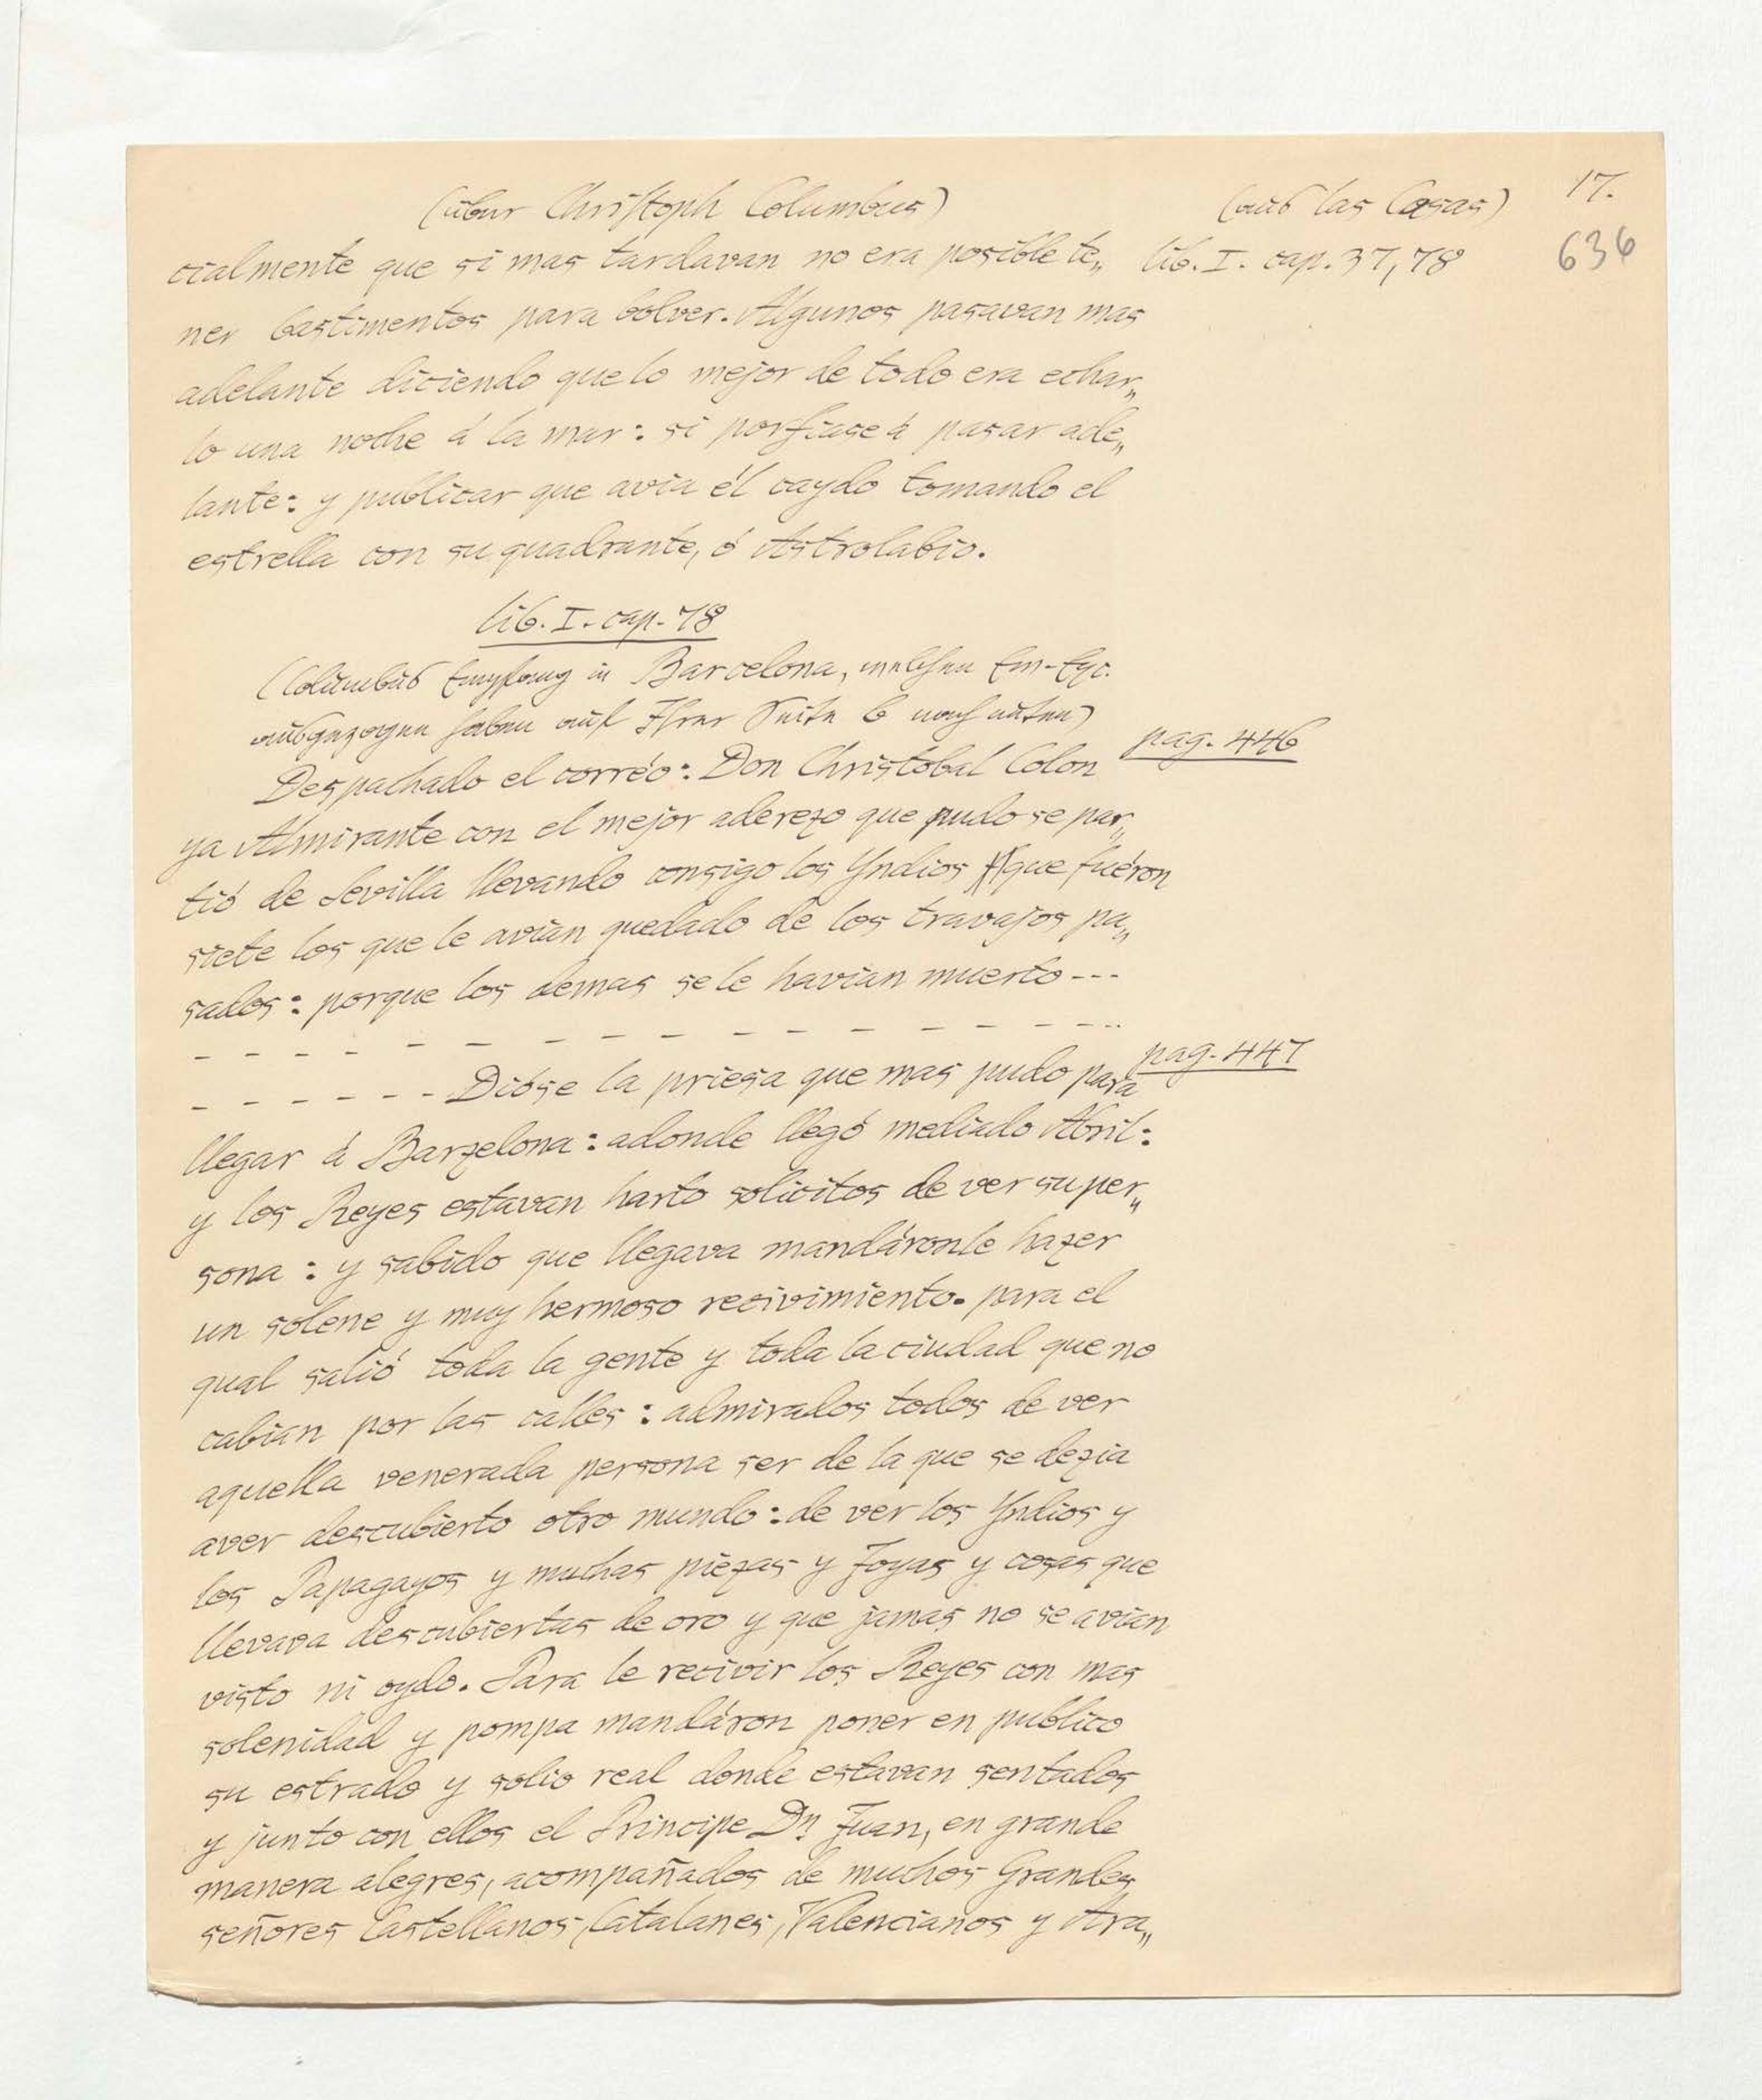 (über Christoph Columbus) (aus las Casas) 17.
cialmente que si mas tardavan no era posible te„ lib. I. cap. 37, 78 636
ner bastimentos para bolver. Algunos pasavan mas
adelante diciendo que lo mejor de todo era echar„
lo una noche á la mar: si porfiase á pasar ade„
lante: y publicar que avia él caydo tomando el
estrella con su quadrante, ó Astrolabio.
lib. I. cap. 78
(Columbus Empfang in Barcelona, welchen Ew. Exc.
ausgezogen haben auf Ihrer Seite 6 nach unten)
pag. 446
Despachado el corréo: Don Christobal Colon
ya Almirante con el mejor aderezo que pudo se par„
tió de Sevilla llevando consigo los Yndios que fuéron
siete los que le avian quedado de los travajos pa„
sados: porque los demas se le havian muerto ---
- - - - - - - - - - - - - - - -
pag. 447
- - - - - - Dióse la priesa que mas pudo para
llegar á Barzelona: adonde llegó mediado Abril:
y los Reyes estavan harto solicitos de ver su per„
sona: y sabido que llegava mandáronle hazer
un solene y muy hermoso recivimiento. para el
qual salió toda la gente y toda la ciudad que no
cabian por las calles: admirados todos de ver
aquella venerada persona ser de la que se dezia
aver descubierto otro mundo: de ver los Yndios y
los Papagayos y muchas piezas y Joyas y cosas que
llevava descubiertas de oro y que jamas no se avian
visto ni oydo. Para le recivir los Reyes con mas
solenidad y pompa mandáron poner en publico
su estrado y solio real donde estavan sentados
y junto con ellos el Principe Dn Juan, en grande
manera alegres, acompañados de muchos Grandes
señores Castellanos, Catalanes, Valencianos y Ara„